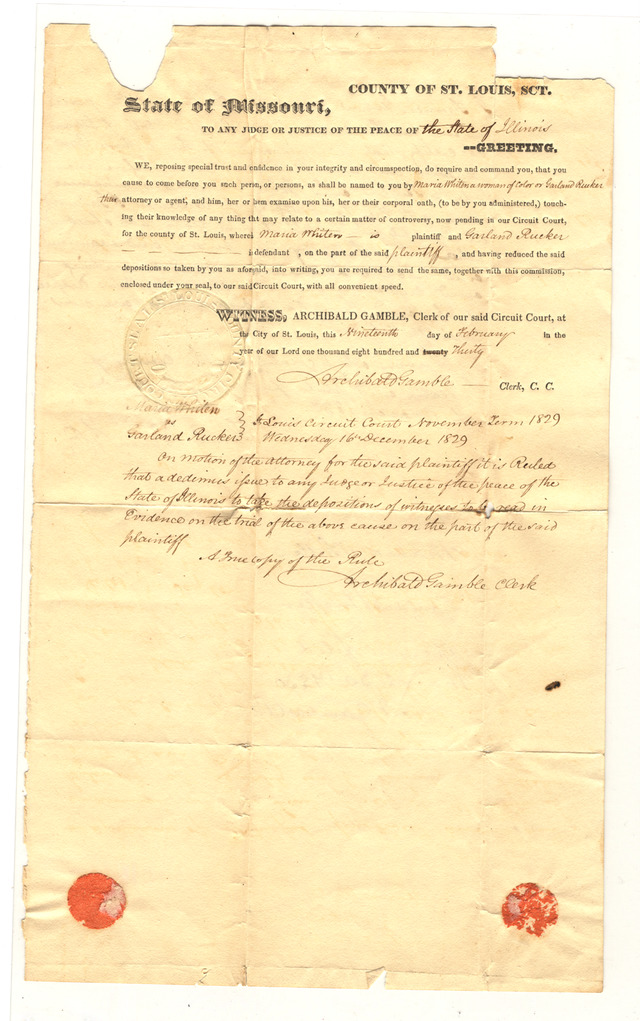 COUNTY OF ST. LOUIS, SCT.
State of Missouri,
TO ANY JUDGE OR JUSTICE OF THE PEACE OF the State of Illinois
--GREETING,
WE, reposing special trust and cnfidence in your integrity and circumspection, do require and command you, that you
cause to come before you such persn, or persons, as shall be named to you by Maria Whiten a woman of Color or Garland Rucker
their attorney or agent; and him, her or hem examine upon his, her or their corporal oath, (to be by you administered,) touch-
ing their knowledge of any thing tht may relate to a certain matter of controversy, now pending in our Circuit Court,
for the county of St. Louis, wherei Maria Whiten is plaintiff and Garland Rucker
is defendant , on the part of the said plaintiff , and having reduced the said
depositions so taken by you as aforsaid, into writing, you are required to send the same, together with this commission,
enclosed under your seal, to our said Circuit Court, with all convenient speed.
WITNESS, ARCHIBALD GAMBLE, Clerk of our said Circuit Court, at
the City of St. Louis, this Nineteenth day of February in the
year of our Lord one thousand eight hundred and twenty Thirty
Archibald Gamble Clerk, C. C.
Maria Whiten
vs St Louis Circuit Court November Term 1829
Garland Rucker Wednesday 16th December 1829
On motion of the Attorney for the said plaintiff it is Ruled
that a dedimus issue to any Judge or Justice of the peace of the
State of Illinois to take the depositions of witnesses to be read in
Evidence on the trial of the above cause on the part of the said
plaintiff
A True copy of the Rule
Archibald Gamble Clerk